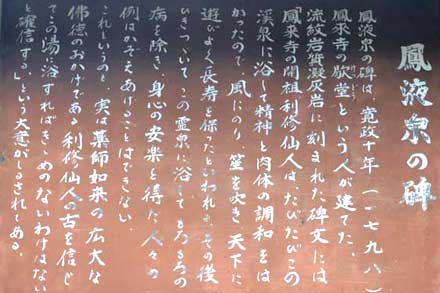 鳳液泉の碑
鳳液泉の碑は、寛政十年(一七九八)
鳳来寺の歓堂という人が建てた。
流紋岩質凝灰岩に刻まれた碑文には
「鳳来寺の開祖利修仙人は、たびたびこの
渓泉に浴して精神と肉体の調和をは
かったので、風にのり、笙を吹き、天下に
遊びよく長寿を保たといわれる。その後
ひきつづいてこの霊泉に浴してもろもろの
病を除き、身心の安楽を得た人々の
例はかぞえあげることはできない。
これというのも、実は薬師如来の広大な
佛徳のおかげである。利修仙人の古を信じ
てこの湯に浴すればききめのないわけはない
と確信する。」という大意がしるされてある。